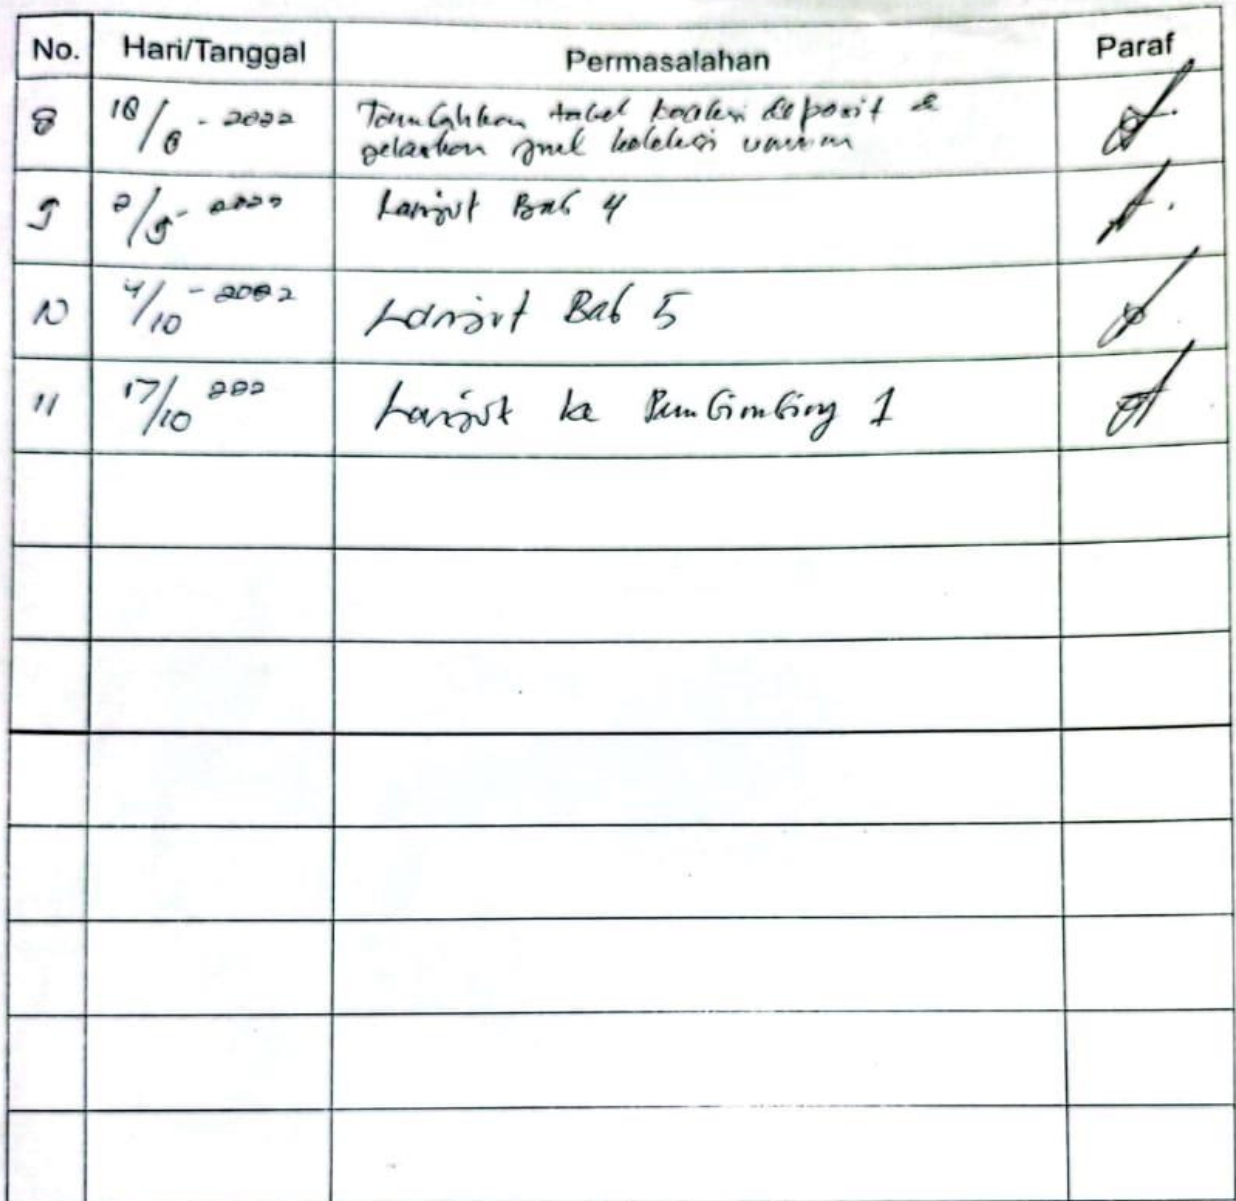 No. Hari/Tanggal Permasalahan Paraf
8 18/8 - 2022 Tambahkan tabel koleksi deposit &
jelaskan koleksi umum
9 2/9 - 2022 Lanjut Bab 4
10 4/10 - 2022 Lanjut Bab 5
11 17/10 202 Lanjut ke Pembimbing 1